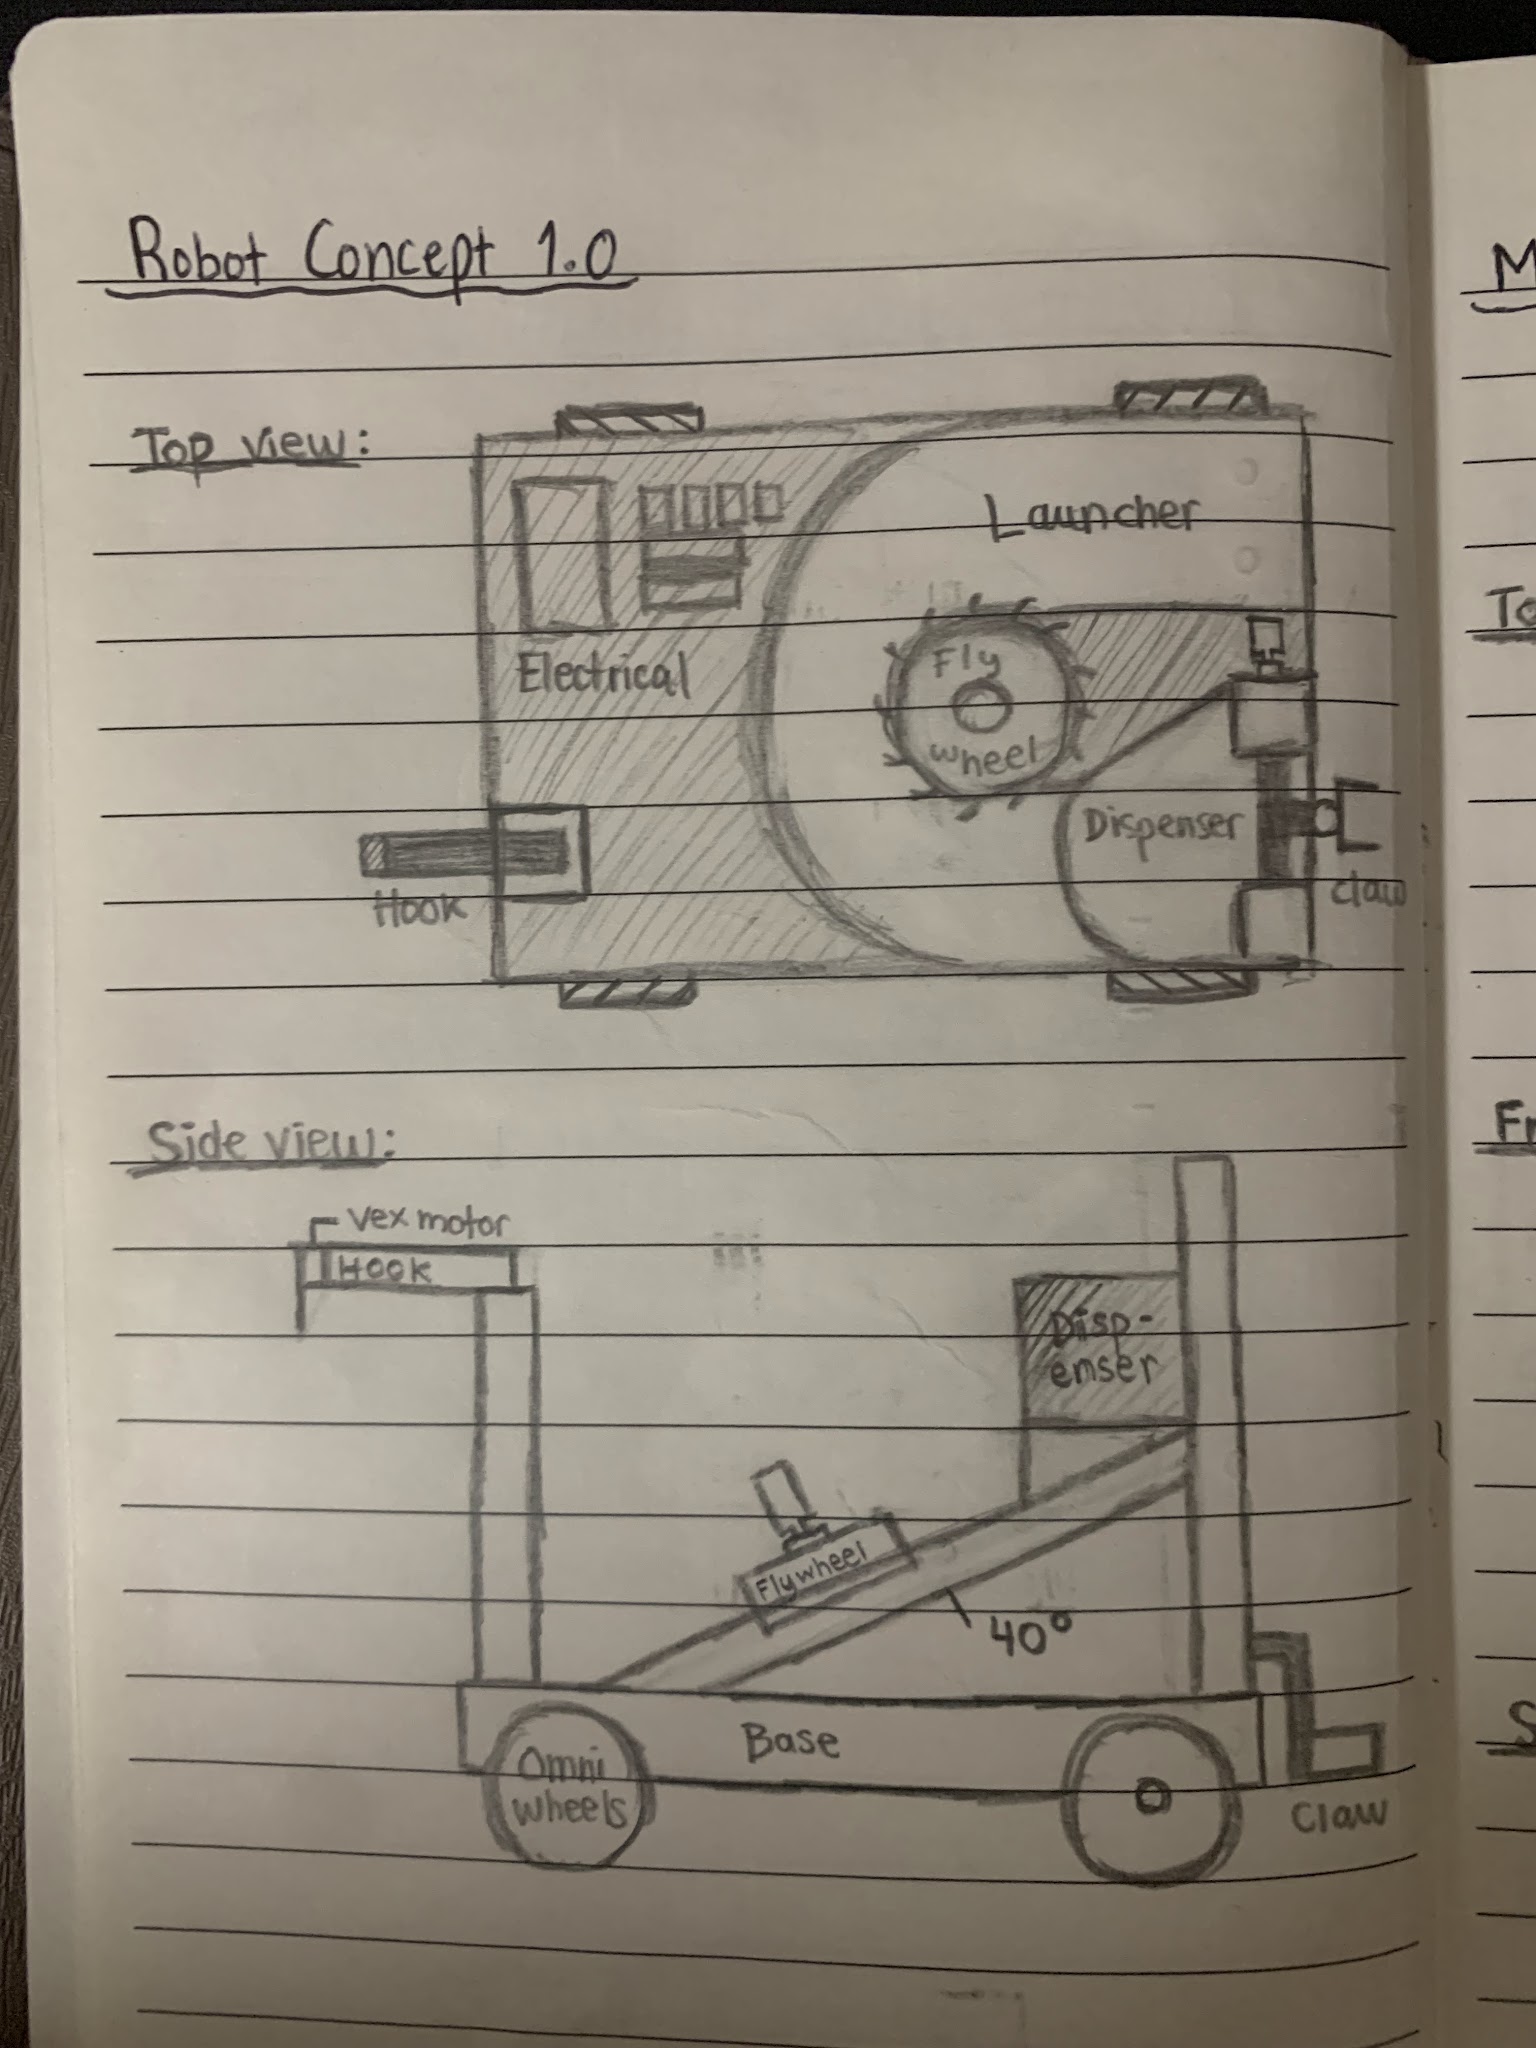 Robot Concept 1.0
Top view:
Launcher
Electrical
Fly
wheel
Dispenser
Hook
claw
Side view:
vex motor
Hook
Disp-
emser
Flywheel
40°
Base
Omni
wheels
claw
M
To
Fr
S